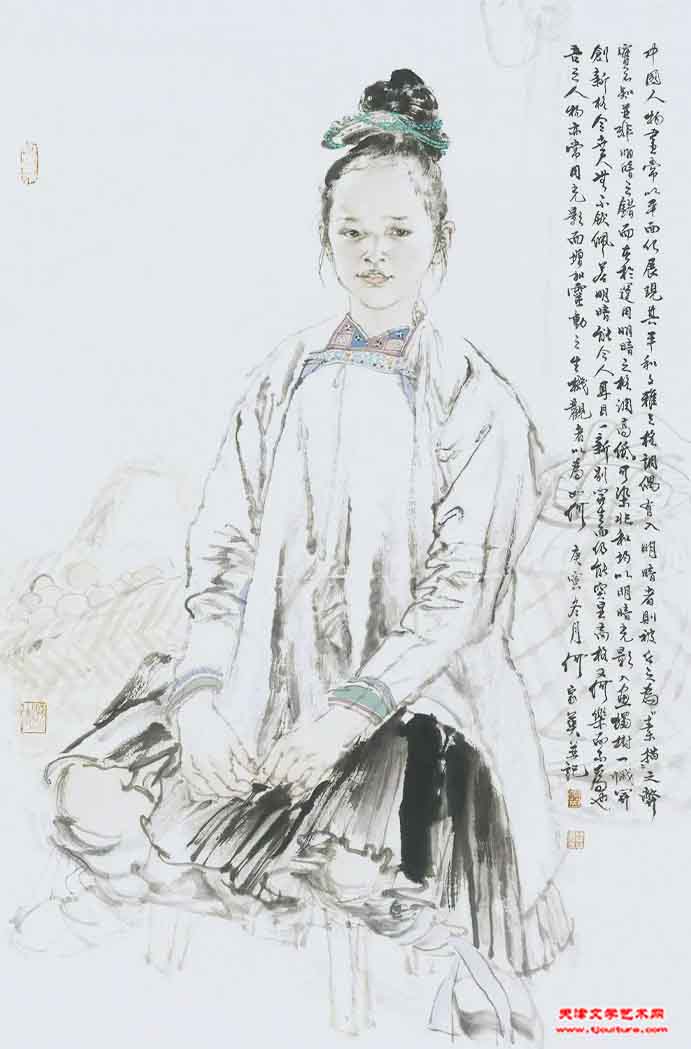 中國人物畫常以平面化展現其平和高雅之格調偶有入明暗者則被石之為素描之弊
實不知並非明暗之錯而在於運用明暗之格調高低可染老和均以明暗光影入畫獨樹一幟開
創新格令老人無不欽佩若明暗能令人耳目一新別開生面仍能突呈高格又何樂而不為也
吾之人物亦常用光影而增加靈動之生機觀者以為如何 庚寅冬月何家英并記
天津文学艺术网
www.tjculture.com